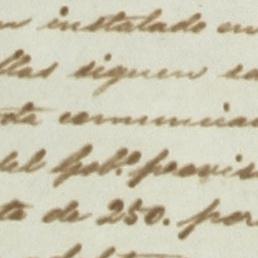 n instalado en
llas siguen
ota comunica
del Gob.º provis
ta de 250. per